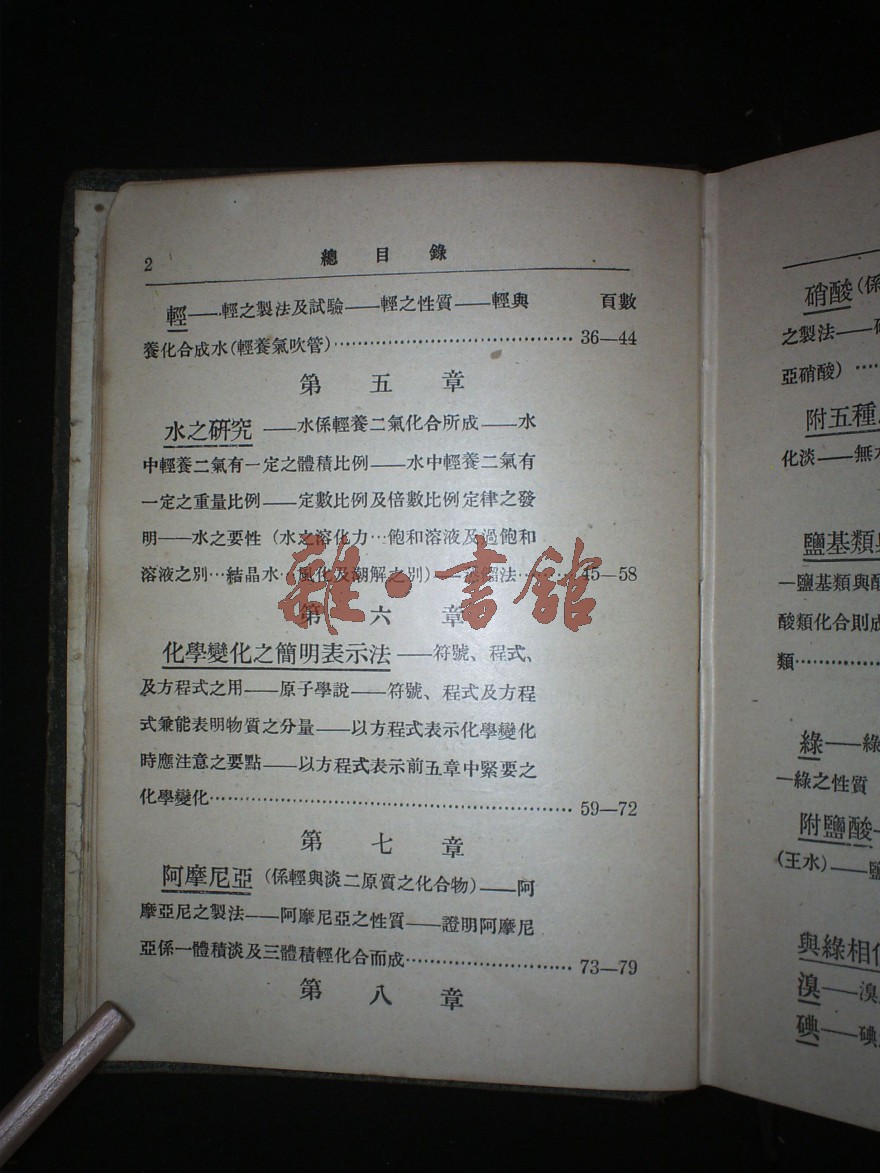 2
總目錄
輕——輕之製法及試驗——輕之性質——輕與 頁數
養化合成水(輕養氣吹管)…………………………… 36—44
第五章
水之研究——水係輕養二氣化合所成——水
中輕養二氣有一定之體積比例——水中輕養二氣有
一定之重量比例——定數比例及倍數比例定律之發
明——水之要性(水之溶化力…飽和溶液及過飽和
溶液之別…結晶水…風化及潮解之別)——法……… 45—58
第六章
化學變化之簡明表示法——符號、程式、
及方程式之用——原子學說——符號、程式及方程
式兼能表明物質之分量——以方程式表示化學變化
時應注意之要點——以方程式表示前五章中緊要之
化學變化…………………………………………… 59—72
第七章
阿摩尼亞(係輕與淡二原質之化合物)——阿
摩亞尼之製法——阿摩尼亞之性質——證明阿摩尼
亞係一體積淡及三體積輕化合而成…………………… 73—79
第八章
雜·書館
硝酸(係
之製法——
亞硝酸)……
附五種
化淡——無
鹽基類
—鹽基類與酸
酸類化合則成
類………
綠——綠
—綠之性質
附鹽酸—
(王水)——鹽
與綠相
溴——溴
碘——碘